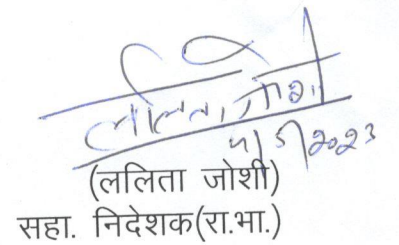 ललिता जोशी
4/5/2023
(ललिता जोशी)
सहा. निदेशक(रा.भा.)